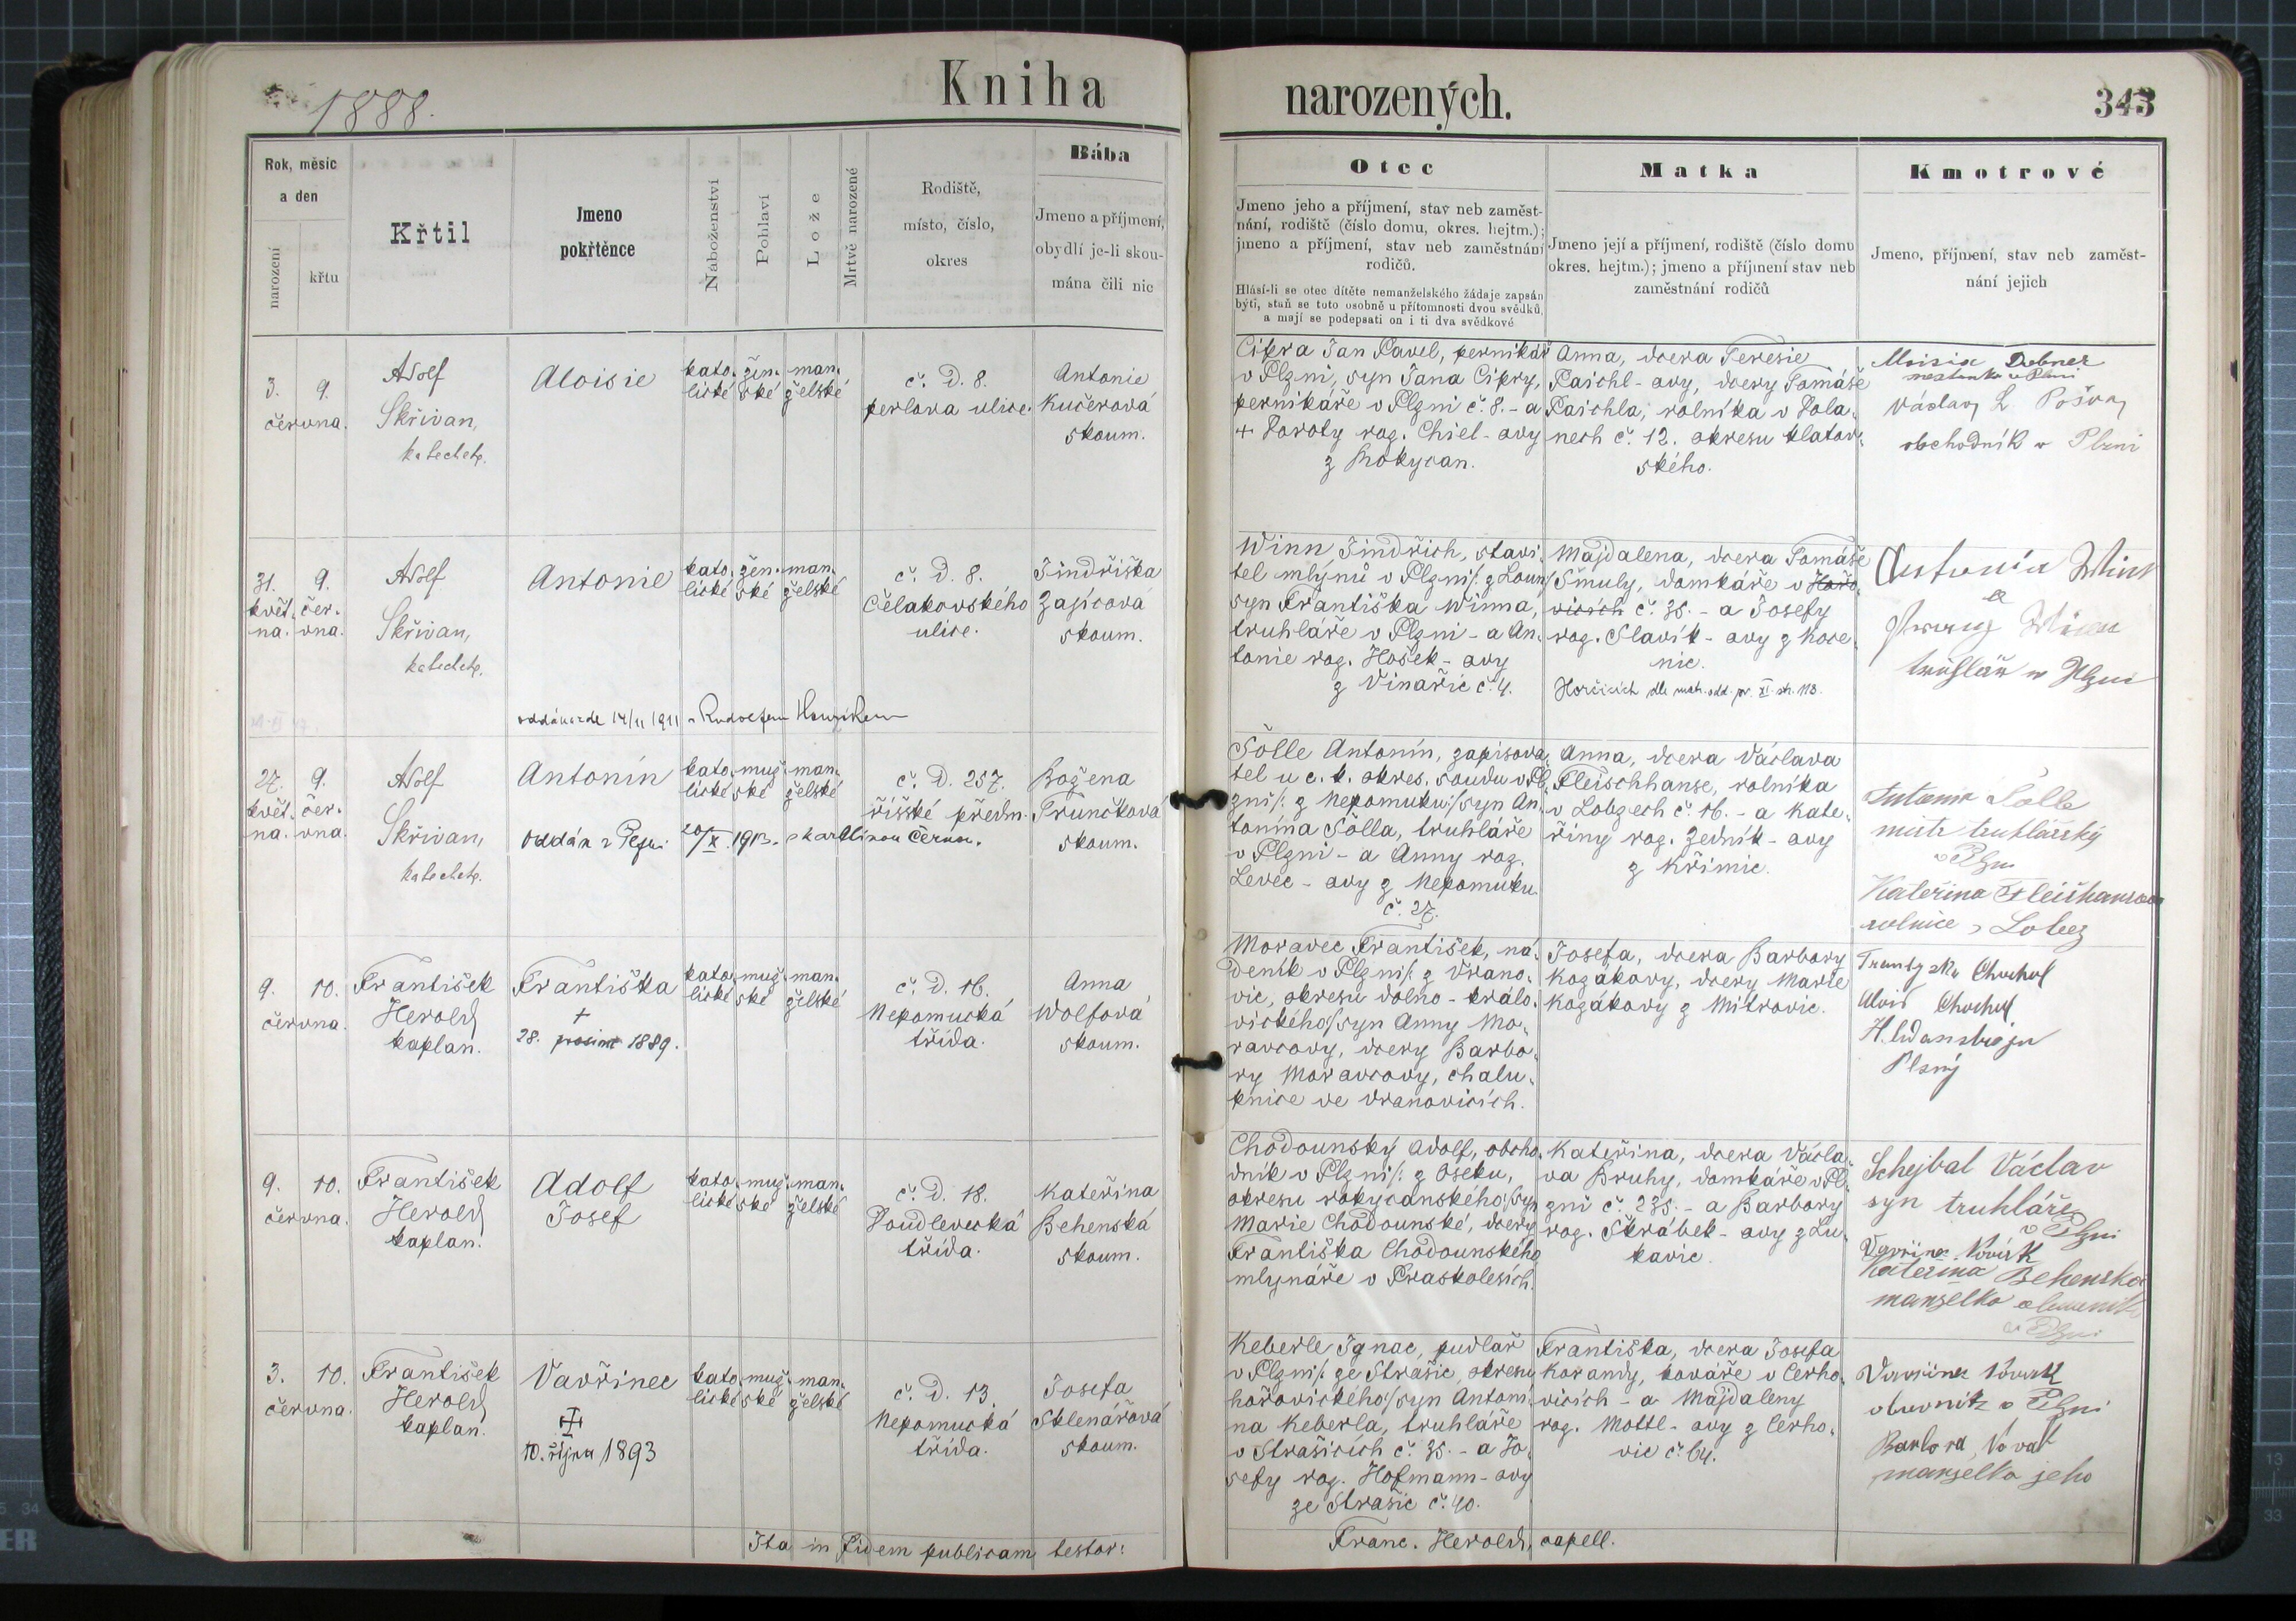 1888.
Kniha
narozených.
343
Rok, měsíc
a den
narození
křtu
Křtil
Jmeno
pokřtěnce
Náboženství
Pohlaví
Lože
Mrtvě narozené
Rodiště,
místo, číslo,
okres
Bába
Jmeno a příjmení,
obydlí je-li skou-
mána čili nic
Otec
Jmeno jeho a příjmení, stav neb zaměst-
nání, rodiště (číslo domu, okres. hejtm.);
jmeno a příjmení, stav neb zaměstnání
rodičů.
Hlásí-li se otec dítěte nemanželského žádaje zapsán
býti, staň se toto osobně u přítomnosti dvou svědků,
a mají se podepsati on i ti dva svědkové
Matka
Jmeno její a příjmení, rodiště (číslo domu
okres. hejtm.); jmeno a příjmení stav neb
zaměstnání rodičů
Kmotrové
Jmeno, příjmení, stav neb zaměst-
nání jejich
3. 9.
června.
Adolf
Skřivan,
katecheta.
Aloisie
kato-
lické
žen-
ské
man-
želské
č. d. 8.
perlova ulice.
Antonie
Kučerová
skoum.
Cipra Jan Pavel, perníkář
v Plzni, syn Jana Cipry,
perníkáře v Plzni č. 8. - a
+ Karoly roz. Chiel - ovy
z Rokycan.
Anna, dcera Teresie
Paichl - ovy, dcery Tomáše
Paichla, rolníka v Pola-
nech č. 12. okresu klatov-
ského.
Marie Dobner
Václav L. Pošva,
obchodník v Plzni
31.
květ-
na.
9.
čer-
vna.
Adolf
Skřivan,
katecheta.
Antonie
kato-
lické
žen-
ské
man-
želské
č. d. 8.
Čelakovského
ulice.
Jindřiška
Zajícová
skoum.
oddána zde 14/11 1911 s Rudolfem
Winn Jindřich, stavi-
tel mlýnů v Plzni /: z Loun /
syn Františka Winna,
truhláře v Plzni - a An-
tonie roz. Hošek - ovy
z Vinařic č. 4.
Majdalena, dcera Tomáše
Šmuly, domkáře v Hoře-
vicích č. 35. - a Josefy
roz. Slavík - ovy z Koce-
nic.
Horčicích dle matr. odd. pr. XI. str. 113.
Antonia Winn
a
Franz Winn
truhlář v Plzni
27.
květ-
na.
9.
čer-
vna.
Adolf
Skřivan,
katecheta.
Antonín
kato-
lické
muž-
ské
man-
želské
č. d. 257.
říšské předm.
Božena
Trunčková
skoum.
oddán v Plzni 20/X. 1913. s Karolinou Černou.
Šölle Antonín, zapisova-
tel u c. k. okres. soudu v Pl-
zni /: z Nepomuku :/ syn An-
tonína Šölla, truhláře
v Plzni - a Anny roz.
Levec - ovy z Nepomuku
č. 27.
Anna, dcera Václava
Fleischhanse, rolníka
v Lobzech č. 16. - a Kate-
řiny roz. Zedník - ovy
z Křimic.
Antonín Šölle
mistr truhlářský
v Plzni
Kateřina Fleišhansova
rolnice z Lobez
9. 10.
června.
František
Herold
kaplan.
Františka
+
28. prosince 1889.
kato-
lické
muž-
ské
man-
želské
č. d. 16.
Nepomucká
třída.
Anna
Wolfová
skoum.
Moravec František, ná-
deník v Plzni /: z Vrano-
vic, okresu dolno - králo-
vického :/ syn Anny Mo-
ravcovy, dcery Barbo-
ry Moravcovy, chalu-
pnice ve Vranovicích.
Josefa, dcera Barbory
Kozákovy, dcery Marie
Kozákovy z Mitrovic.
Frantyzka Chochol
Alois Chochol
Plsný
9. 10.
června.
František
Herold
kaplan.
Adolf
Josef
kato-
lické
muž-
ské
man-
želské
č. d. 18.
Doudlevecká
třída.
Kateřina
Behenská
skoum.
Chodounský Adolf, obcho-
dník v Plzni /: z Oseku,
okresu rokycanského :/ syn
Marie Chodounské, dcery
Františka Chodounského
mlynáře v Praskolesích.
Kateřina, dcera Václa-
va Bruhy, domkáře v Pl-
zni č. 235. - a Barbory
roz. Škrábek - ovy z Lu-
kavic.
Schejbal Václav
syn truhláře
v Plzni
Kateřina Behenská
manželka
v Plzni
3. 10.
června.
František
Herold
kaplan.
Vavřinec
10. října 1893
kato-
lické
muž-
ské
man-
želské
č. d. 13.
Nepomucká
třída.
Josefa
Sklenářová
skoum.
Keberle Ignac, pudlař
v Plzni /: ze Strašic, okresu
hořovického :/ syn Antoni-
na Keberla, truhláře
v Strašicích č. 35. - a Jo-
sefy roz. Hofmann - ovy
ze Strašic č. 40.
Františka, dcera Josefa
Korandy, kováře v Cerho-
vicích - a Majdaleny
roz. Mottl - ovy z Cerho-
vic č. 64.
v Plzni
Barbora Novak
manželka jeho
Ita in fidem publicam testor:
Franc. Herold, capell.